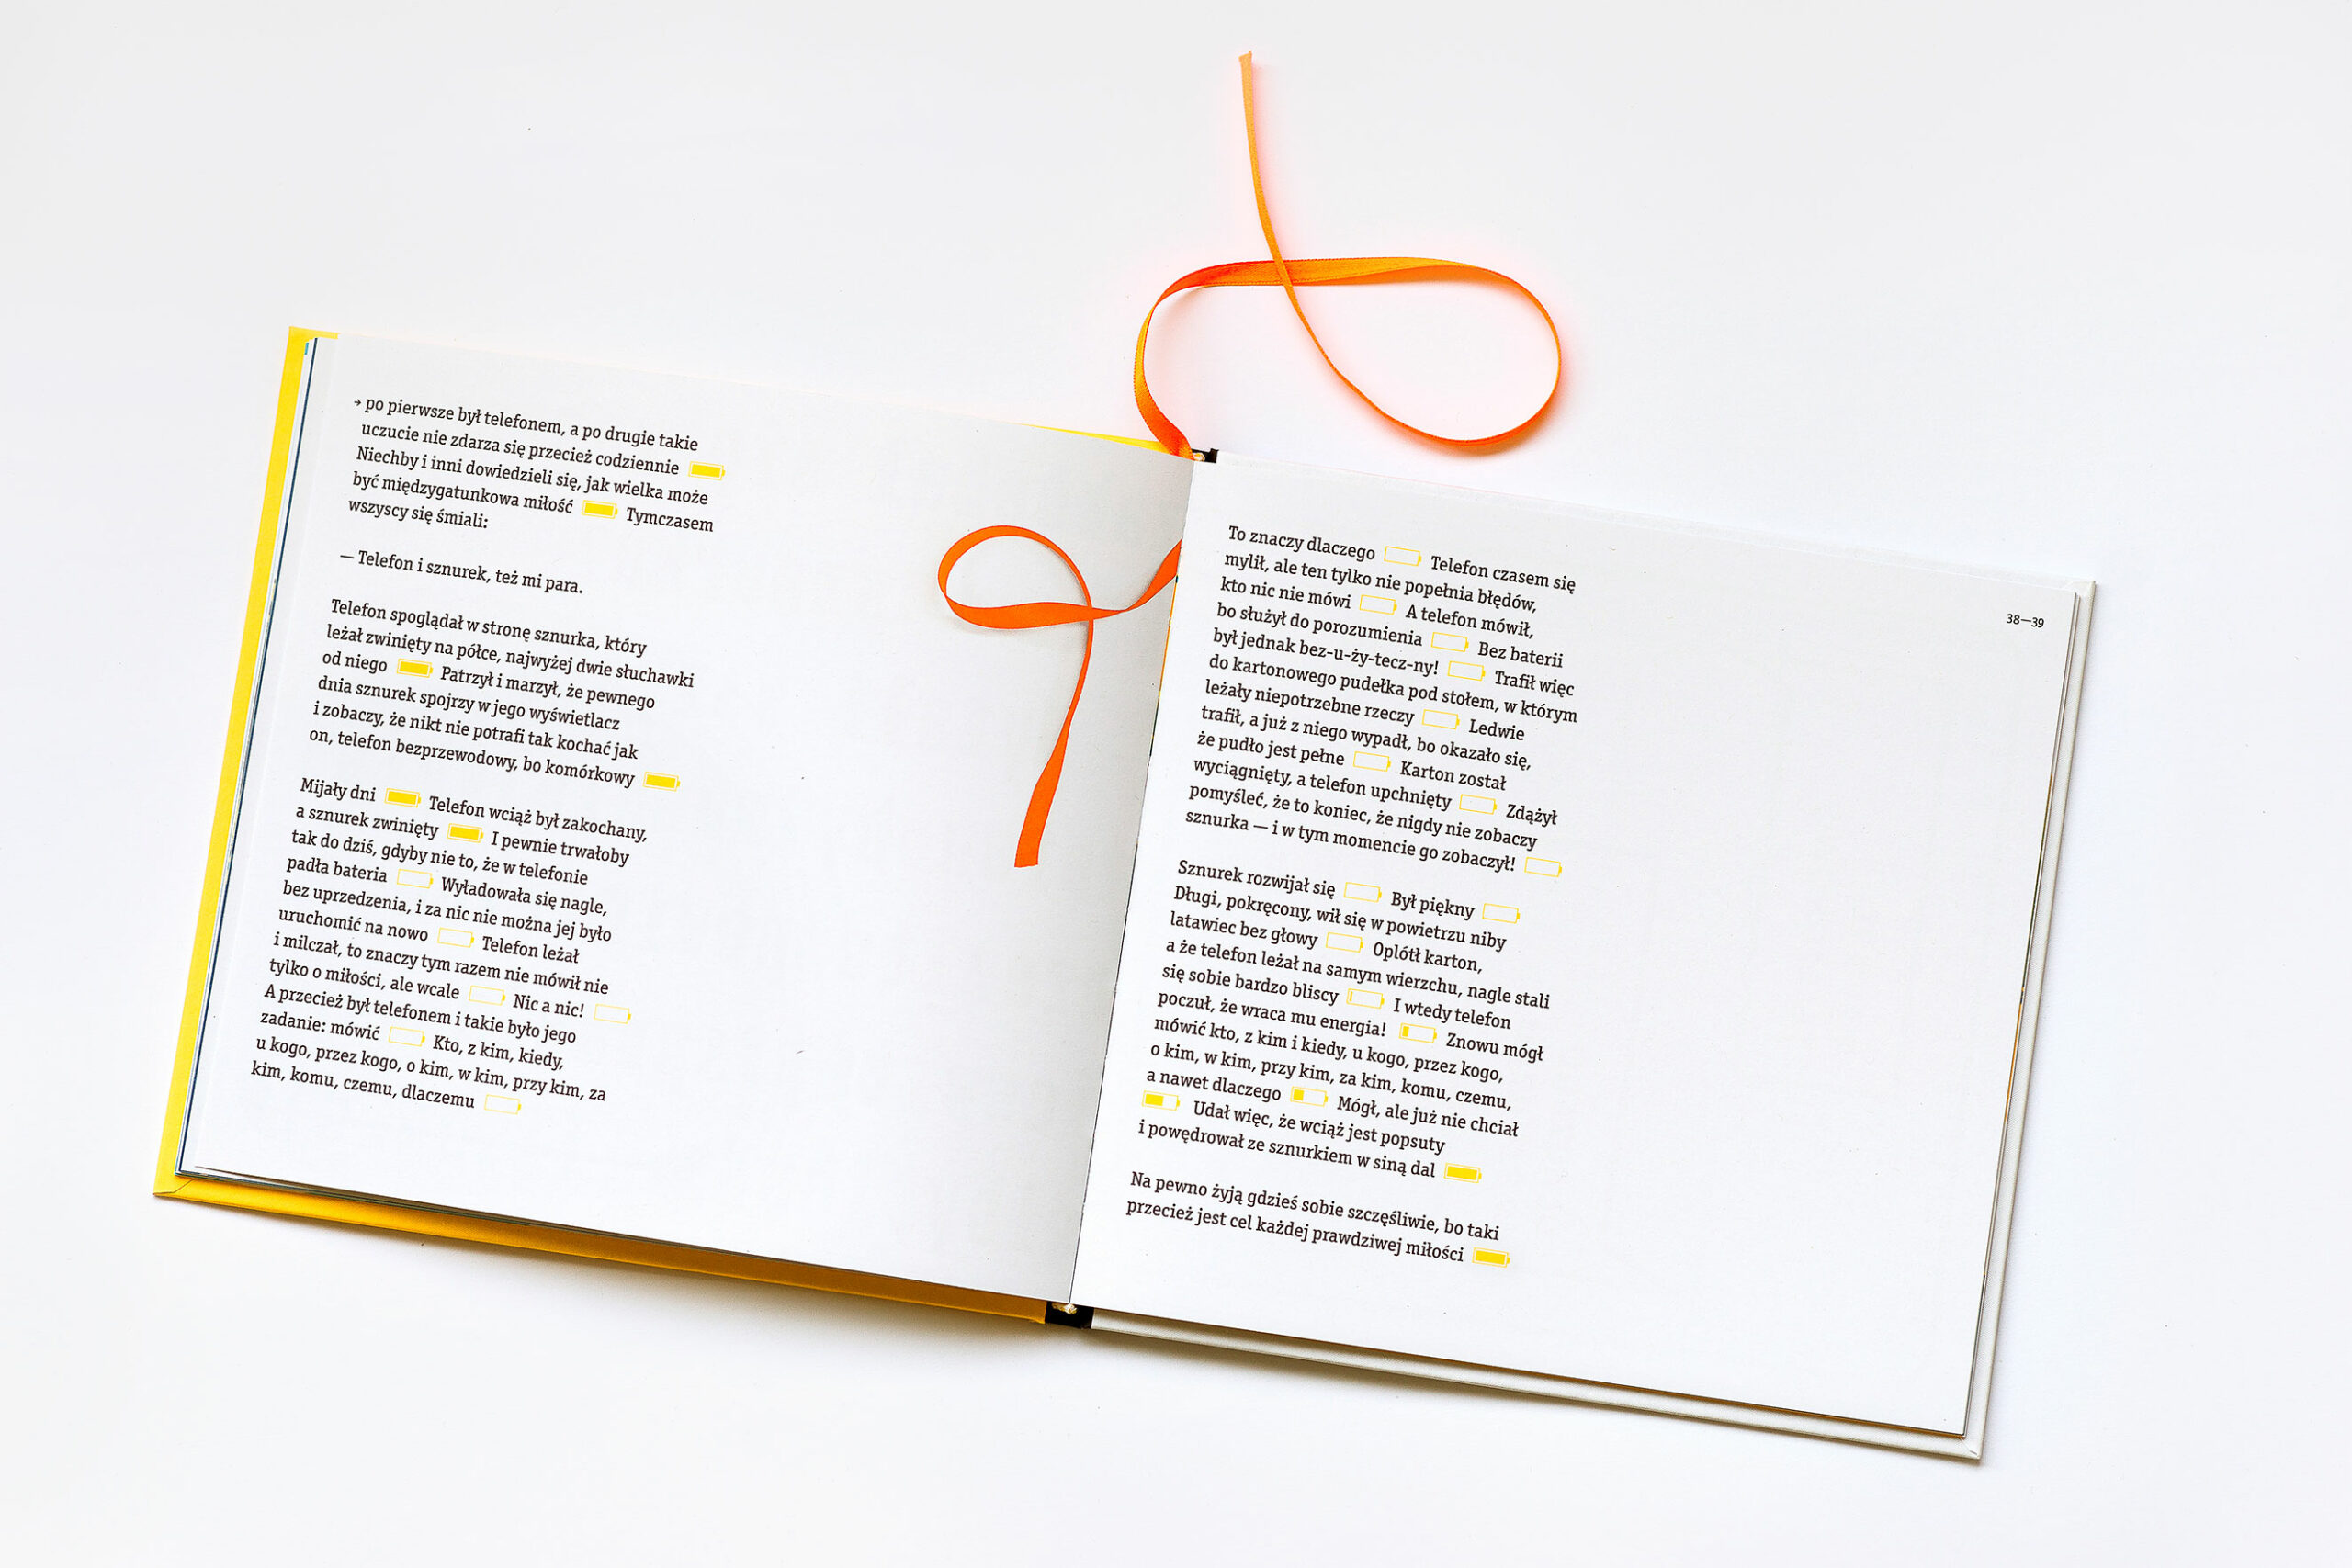 → po pierwsze był telefonem, a po drugie takie
uczucie nie zdarza się przecież codziennie
Niechby i inni dowiedzieli się, jak wielka może
być międzygatunkowa miłość Tymczasem
wszyscy się śmiali:
— Telefon i sznurek, też mi para.
Telefon spoglądał w stronę sznurka, który
leżał zwinięty na półce, najwyżej dwie słuchawki
od niego Patrzył i marzył, że pewnego
dnia sznurek spojrzy w jego wyświetlacz
i zobaczy, że nikt nie potrafi tak kochać jak
on, telefon bezprzewodowy, bo komórkowy
Mijały dni Telefon wciąż był zakochany,
a sznurek zwinięty I pewnie trwałoby
tak do dziś, gdyby nie to, że w telefonie
padła bateria Wyładowała się nagle,
bez uprzedzenia, i za nic nie można jej było
uruchomić na nowo Telefon leżał
i milczał, to znaczy tym razem nie mówił nie
tylko o miłości, ale wcale Nic a nic!
A przecież był telefonem i takie było jego
zadanie: mówić Kto, z kim, kiedy,
u kogo, przez kogo, o kim, w kim, przy kim, za
kim, komu, czemu, dlaczemu
To znaczy dlaczego Telefon czasem się
mylił, ale ten tylko nie popełnia błędów,
kto nic nie mówi A telefon mówił,
bo służył do porozumienia Bez baterii
był jednak bez-u-ży-tecz-ny! Trafił więc
do kartonowego pudełka pod stołem, w którym
leżały niepotrzebne rzeczy Ledwie
trafił, a już z niego wypadł, bo okazało się,
że pudło jest pełne Karton został
wyciągnięty, a telefon upchnięty Zdążył
pomyśleć, że to koniec, że nigdy nie zobaczy
sznurka — i w tym momencie go zobaczył!
Sznurek rozwijał się Był piękny
Długi, pokręcony, wił się w powietrzu niby
latawiec bez głowy Oplótł karton,
a że telefon leżał na samym wierzchu, nagle stali
się sobie bardzo bliscy I wtedy telefon
poczuł, że wraca mu energia! Znowu mógł
mówić kto, z kim i kiedy, u kogo, przez kogo,
o kim, w kim, przy kim, za kim, komu, czemu,
a nawet dlaczego Mógł, ale już nie chciał
Udał więc, że wciąż jest popsuty
i powędrował ze sznurkiem w siną dal
Na pewno żyją gdzieś sobie szczęśliwie, bo taki
przecież jest cel każdej prawdziwej miłości
38—39